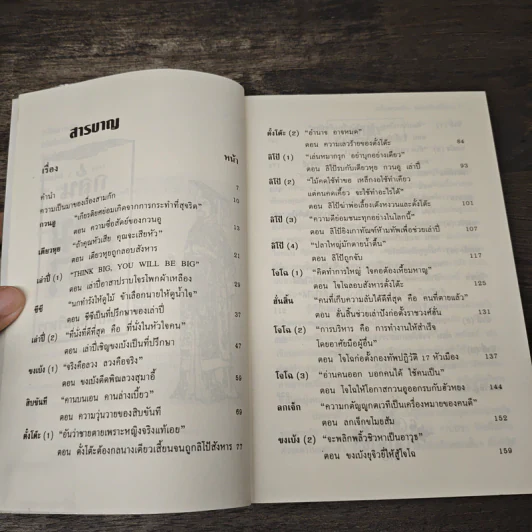 สารบาญ
เรื่อง หน้า
คำนำ 7
ความเป็นมาของเรื่องสามก๊ก 10
กวนอู "เกียรติยศย่อมเกิดจากการกระทำที่สุจริต"
ตอน ความซื่อสัตย์ของกวนอู 13
เตียวหุย "ถ้าคุณหัวเสีย คุณจะเสียหัว"
ตอน เตียวหุยถูกลอบสังหาร 21
เล่าปี่ (1) "THINK BIG, YOU WILL BE BIG"
ตอน เล่าปี่อาสาปราบโจรโพกผ้าเหลือง 27
ชีซี "นกทำรังให้ดูไม้ ข้าเลือกนายให้ดูน้ำใจ"
ตอน ชีซีเป็นที่ปรึกษาของเล่าปี่ 37
เล่าปี่ (2) "ที่นั่งที่ดีที่สุด คือ ที่นั่งในหัวใจคน"
ตอน เล่าปี่เชิญขงเบ้งเป็นที่ปรึกษา 47
ขงเบ้ง (1) "จริงคือลวง ลวงคือจริง"
ตอน ขงเบ้งดีดพิณลวงสุมาอี้ 59
สิบขันที "คานบนเอน คานล่างเบี้ยว"
ตอน ความวุ่นวายของสิบขันที 69
ตั๋งโต๊ะ (1) "อันว่าชายตายเพราะหญิงจริงแท้เอย"
ตอน ตั๋งโต๊ะต้องกลนางเตียวเสี้ยนจนถูกลิโป้สังหาร 77
ตั๋งโต๊ะ (2) "อำนาจ อาจหมด"
ตอน ความเลวร้ายของตั๋งโต๊ะ 84
ลิโป้ (1) "เล่นหมากรุก อย่าบุกอย่างเดียว"
ตอน ลิโป้รบกับเตียวหุย กวนอู เล่าปี่ 93
ลิโป้ (2) "ไม้คดใช้ทำขอ เหล็กงอใช้ทำเคียว
แต่คนคดเคี้ยว จะใช้ทำอะไรได้"
ตอน ลิโป้ฆ่าพ่อเลี้ยงเต๊งหงวนและตั๋งโต๊ะ 101
ลิโป้ (3) "ความดีย่อมชนะทุกอย่างในโลกนี้"
ตอน ลิโป้ยิงเกาทัณฑ์ห้ามทัพเพื่อช่วยเล่าปี่ 107
ลิโป้ (4) "ปลาใหญ่มักตายน้ำตื้น"
ตอน ลิโป้ถูกจับ 117
โจโฉ (1) "คิดทำการใหญ่ ใจคอต้องเหี้ยมหาญ"
ตอน โจโฉลอบสังหารตั๋งโต๊ะ 125
ฮั่นสิ้น "คนที่เก็บความลับได้ดีที่สุด คือ คนที่ตายแล้ว"
ตอน ฮั่นสิ้นช่วยเล่าปังก่อตั้งราชวงศ์ฮั่น 131
โจโฉ (2) "การบริหาร คือ การทำงานให้สำเร็จ
โดยอาศัยมือผู้อื่น"
ตอน โจโฉก่อตั้งกองทัพปฏิวัติ 17 หัวเมือง 137
โจโฉ (3) "อ่านคนออก บอกคนได้ ใช้คนเป็น"
ตอน โจโฉให้โอกาสกวนอูออกรบกับฮัวหยง 144
ลกเจ๊ก "ความกตัญญูกตเวทีเป็นเครื่องหมายของคนดี"
ตอน ลกเจ๊กขโมยส้ม 152
ขงเบ้ง (2) "จะพลิกพลิ้วชิวหาเป็นอาวุธ"
ตอน ขงเบ้งยุจิวยี่ให้สู้โจโฉ 159